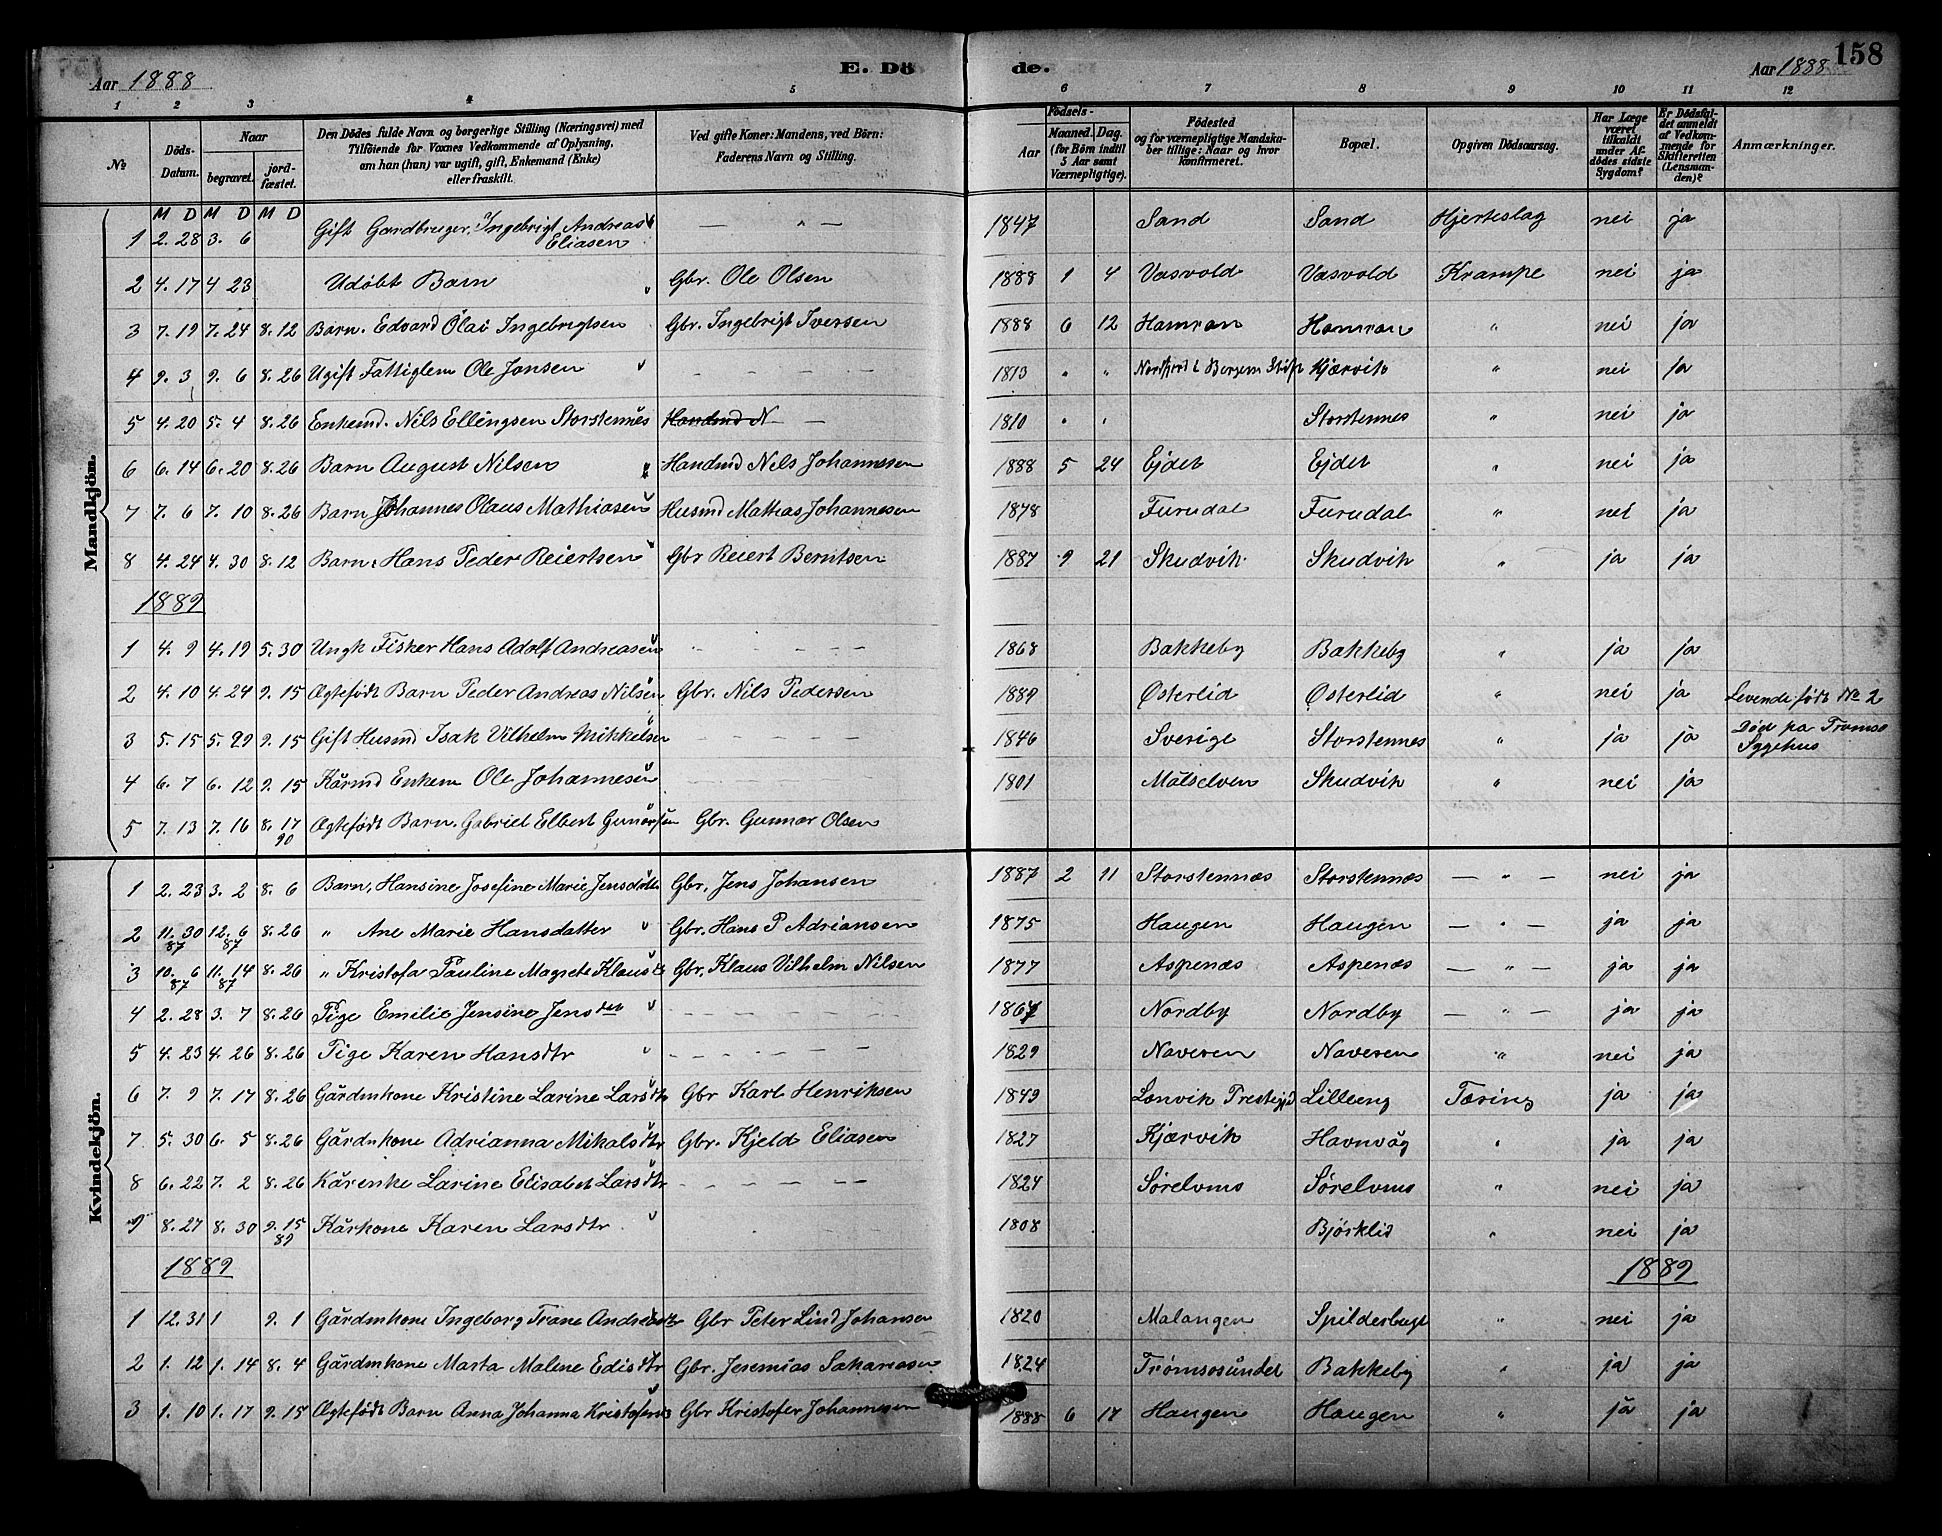 Aar 1888 E. Dö de. Aar 1888 158
1 2 3 4 5 6 7 8 9 10 11 12
№ Döds-Datum. Naar begravet. jordfæstet. Den Dödes fulde Navn og borgerlige Stilling (Næringsvei) med Tilföiende for Voxnes Vedkommende af Oplysning, om han (hun) var ugift, gift, Enkemand (Enke) eller fraskilt. Ved gifte Koner: Mandens, ved Börn: Faderens Navn og Stilling. Födsels- Aar Maaned. Dag. (for Börn indtil 5 Aar samt Værnepligtige). Födested og for værnepligtige Mandskaber tillige: Naar og hvor konfirmeret. Bopæl. Opgiven Dödsaarsag. Har Læge været tilkaldt under Afdödes sidste Sygdom? Er Dödsfaldet anmeldt af Vedkommende for Skifteretten (Lensmanden)? Anmærkninger.
Mandkjön.
M D M D M D
1 2. 28 3. 6 Gift Gardbruger. Ingebrigt Andreas Eliasen — " — 1847 Sand Sand Hjerteslag nei ja
2 4. 17 4 23 Udøbt Barn Gbr. Ole Olsen 1888 1 4 Vasvold Vasvold Krampe nei ja
3 7. 19 7. 24 8. 12 Barn. Edvard Olai Ingebrigtsen Gbr. Ingebrigt Iversen 1888 6 12 Hamran Hamran " nei ja
4 9. 3 9. 6 8. 26 Ugift Fattiglem Ole Jonsen — — — — — 1813 " " Nordfjord i Bergens Stift Kjærvik " nei ja
5 4. 20 5. 4 8. 26 Enkemd. Nils Ellingsen Storstennes Handmd N — — 1810 " " Storstennes " nei ja
6 6. 14 6. 20 8. 26 Barn August Nilsen Handmd Nils Johannesen 1888 5 24 Ejdet Ejdet " nei ja
7 7. 6 7. 10 8. 26 Barn Johannes Olaus Mathiasen Husmd Mathias Johannesen 1878 Furudal Furudal " nei ja
8 4. 24 4. 30 8. 12 Barn. Hans Peder Reiertsen Gbr Reiert Berntsen 1887 9 21 Skudvik Skudvik " ja ja
1889
1 4. 9 4. 19 5. 30 Ungk Fisker Hans Adolf Andreasen — — — — — 1868 Bakkeby Bakkeby " ja ja
2 4. 10 4. 24 9. 15 Ægtefødt Barn Peder Andreas Nilsen Gbr. Nils Pedersen 1889 Østerlid Østerlid " nei ja Levende født № 2
3 5. 15 5. 29 9. 15 Gift Husmd Isak Vilhelm Mikkelsen — — — — — 1846 Sverige Storstennes " ja ja Død paa Tromsø Sygehus
4 6. 7 6. 12 9. 15 Kårmd Enkem Ole Johannesen — — — — — 1801 Målselven Skudvik " nei ja
5 7. 13 7. 16 8. 17 90 Ægtefødt Barn. Gabriel Elbert Gunarsen Gbr. Gunnar Olsen
Kvindekjön.
1 2. 23 3. 2 8. 6 Barn, Hansine Josefine Marie Jensdtr Gbr. Jens Johansen 1887 2 11 Storstennæs Storstennæs — " — nei ja
2 11. 30 87 12. 6 87 8. 26 " Ane Marie Hansdatter Gbr. Hans P Adriansen 1875 Haugen Haugen — " — ja ja
3 10. 6 87 11. 14 87 8. 26 " Kristofa Pauline Magrete Klausdtr Gbr. Klaus Vilhelm Nilsen 1877 Aspenæs Aspenæs — " — ja ja
4 2. 28 3. 7 8. 26 Pige Emilie Jensine Jensdtr — — — — — 1867 Nordby Nordby — " — ja ja
5 4. 23 4. 26 8. 26 Pige Karen Hansdtr — — — — — 1829 Naveren Naveren " nei ja
6 7. 9 7. 17 8. 26 Gårdmkone Kristine Larine Larsdtr Gbr Karl Henriksen 1849 Lenvik Prestegjd Lilleng Tæring ja ja
7 5. 30 6. 5 8. 26 Gårdmkone Adrianna Mikalsdtr Gbr. Kjeld Eliasen 1827 Kjærvik Havnvåg " ja ja
8 6. 22 7. 2 8. 26 Kårenke Larine Elisabet Larsdtr — — — — — 1824 Sørelvens Sørelvens " nei ja
9 8. 27 8. 30 9. 15 89 Kårkone Karen Larsdtr 1808 Bjørklid " nei ja
1889 1889
1 12. 31 1 9. 1 Gårdmkone Ingeborg Trane Andreasdtr Gbr Peter Lind Johansen 1820 Malangen Spilderbugt " nei ja
2 1. 12 1. 14 8. 4 Gårdmkone Marta Malene Edisdtr Gbr. Jeremias Sakariasen 1824 Trømsøsundet Bakkeby " ja ja
3 1. 10 1. 17 9. 15 Ægtefødt Barn Anna Johanna Kristofersd Gbr Kristofer Johannesen 1888 6 17 Haugen Haugen " ja ja